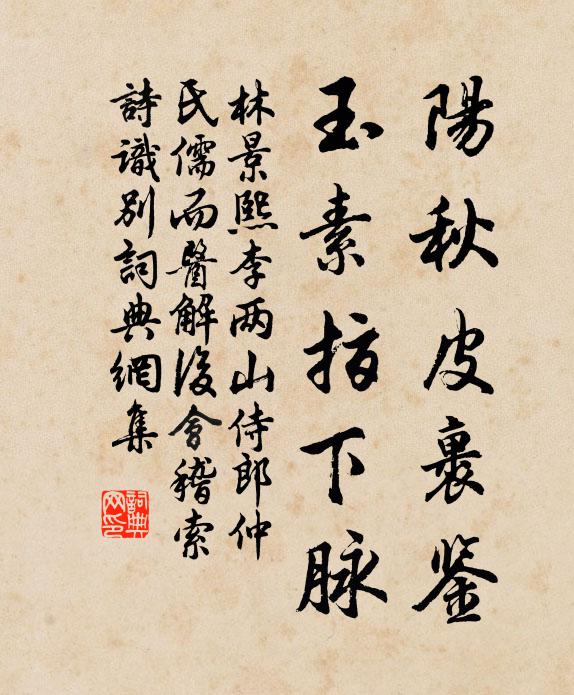 陽秋皮裹鉴
玉素指下脉
林景熙李两山侍郎仲
氏儒而醫解後會稽索
詩識别詞典網集
詞典网印